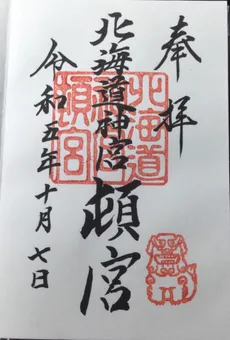 奉拝
北海道神宮
頓宮
令和五年十月七日
北海道
神宮
頓宮